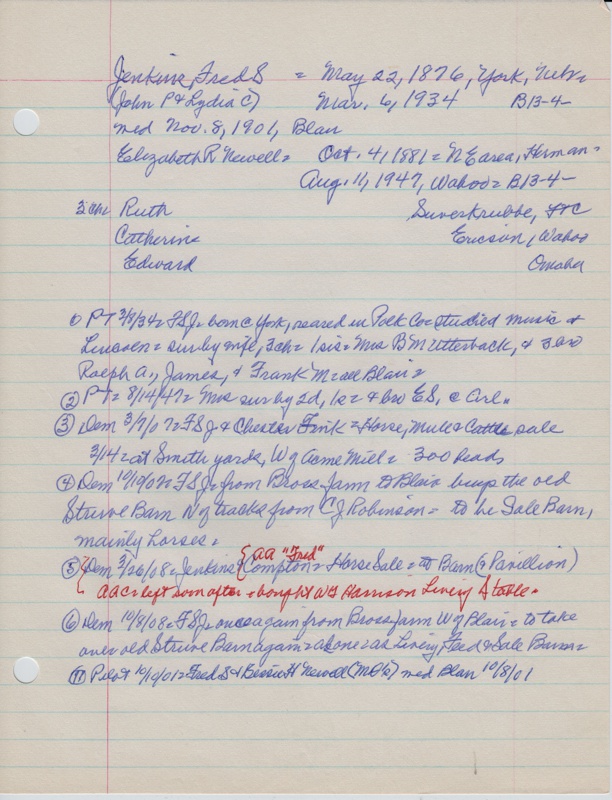 Jenkins, Fred S = May 22, 1876, York, Neb=
(John P & Lydia C) Mar. 6, 1934 B13-4-
med Nov. 8, 1901, Blair
Elizabeth R Newell= Oct. 4, 1881= N Earea, Herman=
Aug. 11, 1947, Wahoo= B13-4-
3 ch= Ruth Suverkrubbe, FtC
Catherine Ericson, Wahoo
Edward Omaha
① PT 3/8/34= FSJ= born @ York, reared in Polk Co= studied music @
Lincoln= sur by wife, 3 ch= 1 sis= Mrs BM Utterback, & 3 bro
Ralph A., James, & Frank M= all Blair=
② PT= 8/14/47= Mrs sur by 2d, 1s= & bro E S, @ Arl.
③ Dem 3/7/07= FSJ & Chester Fink= Horse, Mule & Cattle sale
3/14= at Smith yards, W of Acme Mill= 300 heads
④ Dem 10/19/07= FSJ= from Bross farm to Blair buys the old
Struve Barn N of tracks from C J Robinson= to be Sale Barn,
mainly horses=
{AA "Fred"
⑤ Dem 3/26/08= Jenkins & Compton= Horse Sale= @ Barn (& Pavillion)
AAC= left soon after & bought WG Harrison Livery Stable=
⑥ Dem 10/8/08= FSJ= once again from Bross farm W of Blair= to take
over old Struve Barn again= alone= as Livery, Feed & Sale Barn=
⑪ Pilot 10/10/01= Fred S & Bessie H Newell (MO's) med Blair 10/8/01